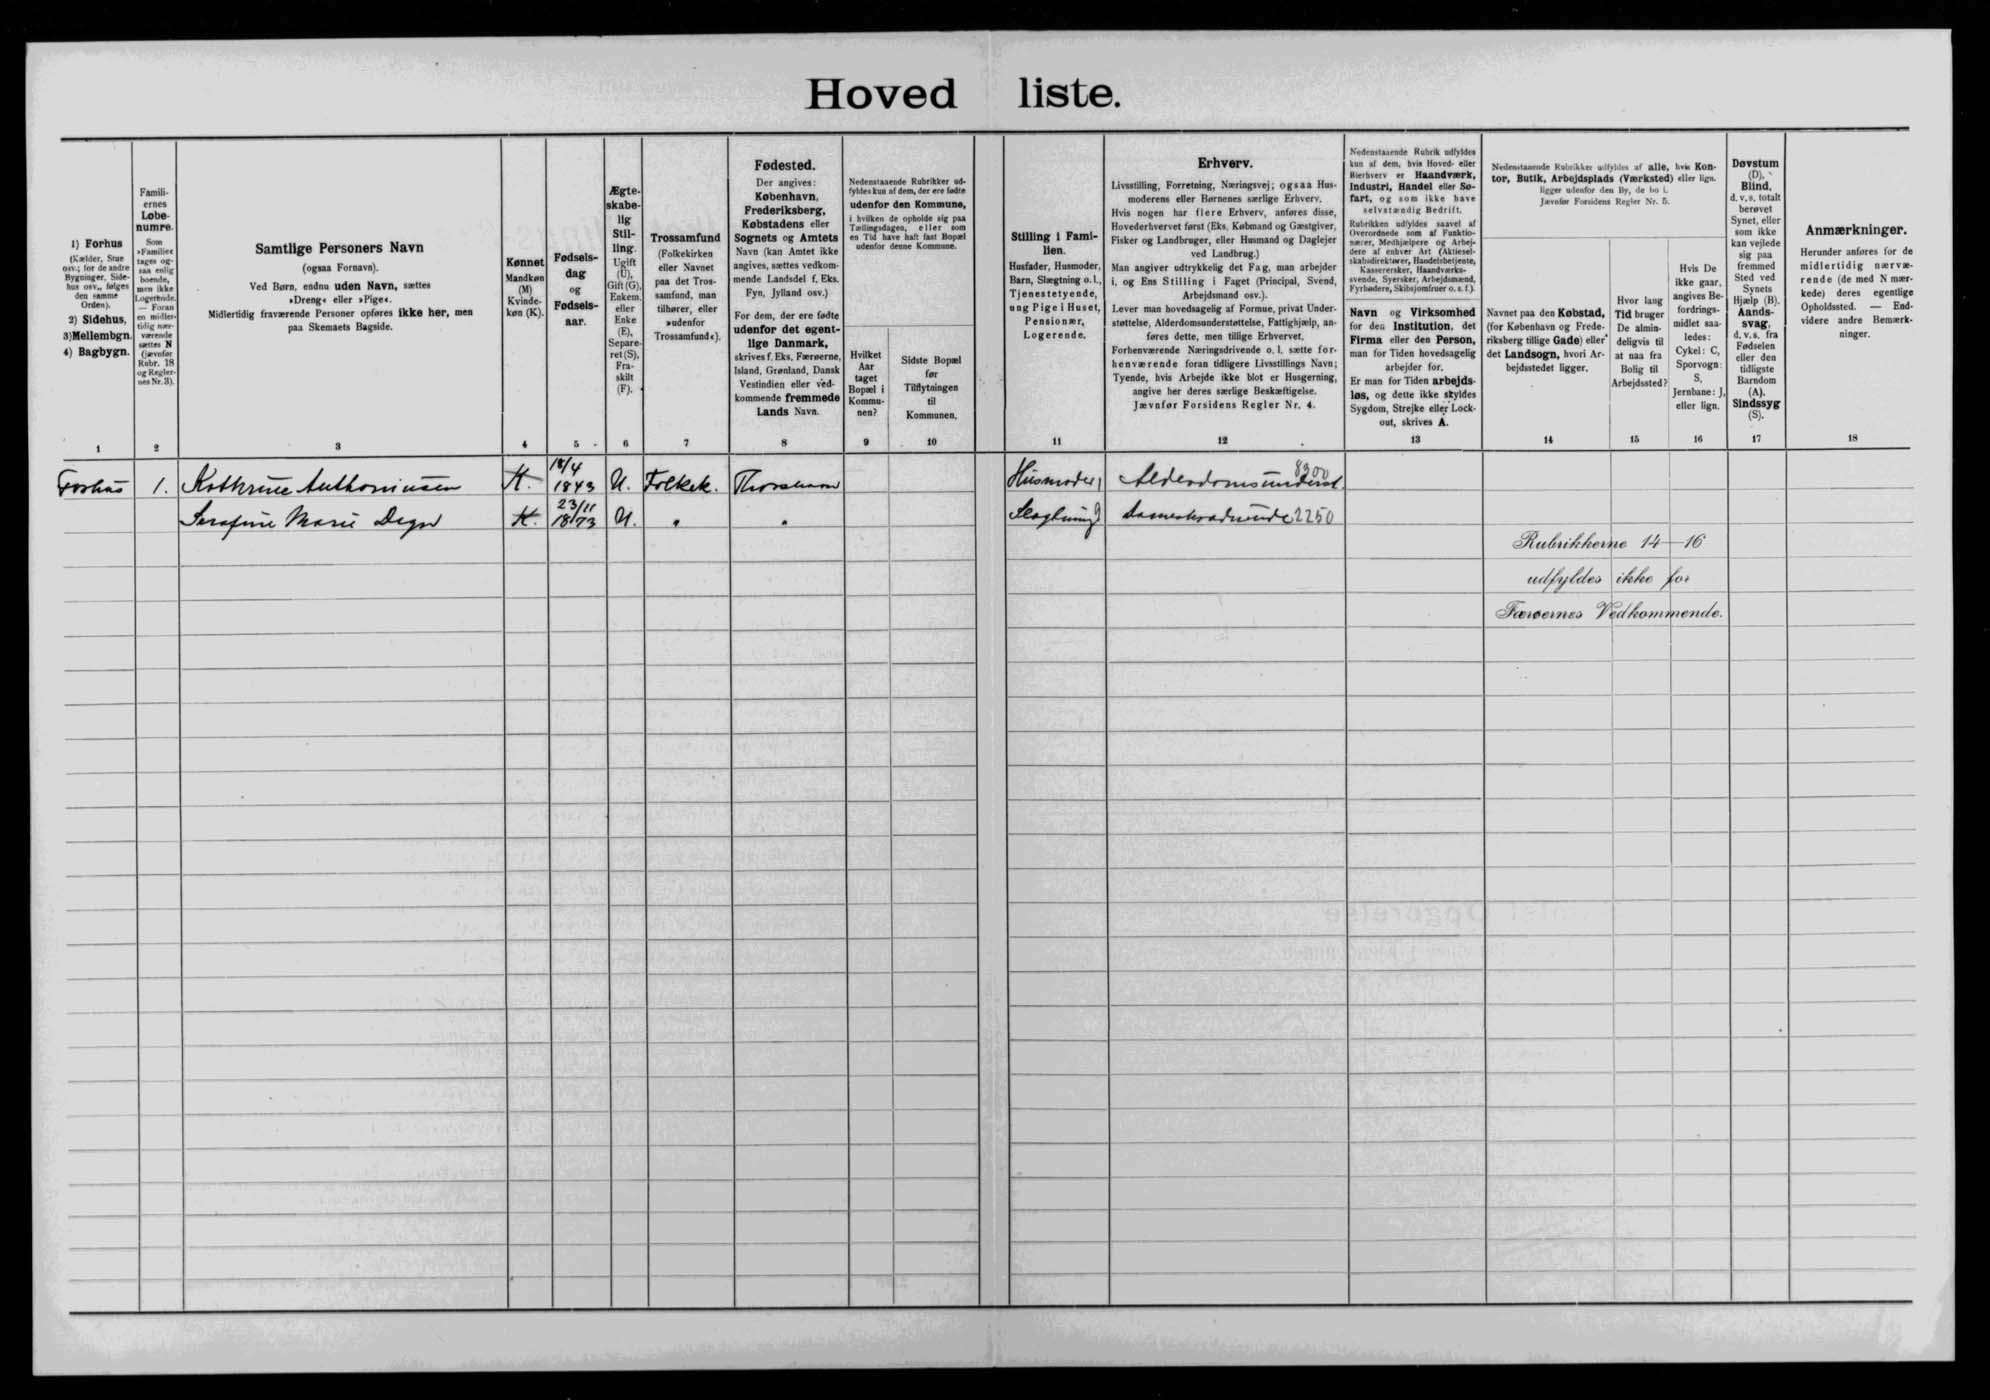 Hoved liste.
1) Forhus
(Kælder, Stue
osv.; for de andre
Bygninger, Side-
hus osv., følges
den samme
Orden).
2) Sidehus,
3) Mellembgn.
4) Bagbygn.
1
Famili-
ernes
Løbe-
numre.
Som
»Familie«
tages og-
saa enlig
boende,
men ikke
Logerende.
— Foran
en midler-
tidig nær-
værende
sættes N
(jævnfør
Rubr. 18
og Regler-
nes Nr. 3).
2
Samtlige Personers Navn
(ogsaa Fornavn).
Ved Børn, endnu uden Navn, sættes
»Dreng« eller »Pige«.
Midlertidig fraværende Personer opføres ikke her, men
paa Skemaets Bagside.
3
Kønnet
Mandkøn
(M)
Kvinde-
køn (K).
4
Fødsels-
dag
og
Fødsels-
aar.
5
Ægte-
skabe-
lig
Stil-
ling.
Ugift
(U),
Gift (G),
Enkem.
eller
Enke
(E),
Separe-
ret (S),
Fra-
skilt
(F).
6
Trossamfund
(Folkekirken
eller Navnet
paa det Tros-
samfund, man
tilhører, eller
»udenfor
Trossamfund«).
7
Fødested.
Der angives:
København,
Frederiksberg,
Købstadens eller
Sognets og Amtets
Navn (kan Amtet ikke
angives, sættes vedkom-
mende Landsdel f. Eks.
Fyn, Jylland osv.)
For dem, der ere fødte
udenfor det egent-
lige Danmark,
skrives f. Eks. Færøerne,
Island, Grønland, Dansk
Vestindien eller ved-
kommende fremmede
Lands Navn.
8
Nedenstaaende Rubrikker ud-
fyldes kun af dem, der ere fødte
udenfor den Kommune,
i hvilken de opholde sig paa
Tællingsdagen, eller som
en Tid have haft fast Bopæl
udenfor denne Kommune.
Hvilket
Aar
taget
Bopæl i
Kommu-
nen?
9
Sidste Bopæl
før
Tilflytningen
til
Kommunen.
10
Stilling i Fami-
lien.
Husfader, Husmoder,
Barn, Slægtning o. l.,
Tjenestetyende,
ung Pige i Huset,
Pensionær,
Logerende.
11
Erhverv.
Livsstilling, Forretning, Næringsvej; ogsaa Hus-
moderens eller Børnenes særlige Erhverv.
Hvis nogen har flere Erhverv, anføres disse,
Hovederhvervet først (Eks. Købmand og Gæstgiver,
Fisker og Landbruger, eller Husmand og Daglejer
ved Landbrug.)
Man angiver udtrykkelig det Fag, man arbejder
i, og Ens Stilling i Faget (Principal, Svend,
Arbejdsmand osv.).
Lever man hovedsagelig af Formue, privat Under-
støttelse, Alderdomsunderstøttelse, Fattighjælp, an-
føres dette, men tillige Erhvervet.
Forhenværende Næringsdrivende o. l. sætte for-
henværende foran tidligere Livsstillings Navn;
Tyende, hvis Arbejde ikke blot er Husgerning,
angive her deres særlige Beskæftigelse.
Jævnfør Forsidens Regler Nr. 4.
12
Nedenstaaende Rubrik udfyldes
kun af dem, hvis Hoved- eller
Bierhverv er Haandværk,
Industri, Handel eller Sø-
fart, og som ikke have
selvstændig Bedrift.
Rubrikken udfyldes saavel af
Overordnede som af Funktio-
nærer, Medhjælpere og Arbej-
dere af enhver Art (Aktiesel-
skabsdirektører, Handelsbetjente,
Kassererskер, Haandværks-
svende, Syersker, Arbejdsmænd,
Fyrbødere, Skibsjomfruer o. s. f.).
Navn og Virksomhed
for den Institution, det
Firma eller den Person,
man for Tiden hovedsagelig
arbejder for.
Er man for Tiden arbejds-
løs, og dette ikke skyldes
Sygdom, Strejke eller Lock-
out, skrives A.
13
Nedenstaaende Rubrikker udfyldes af alle, hvis Kon-
tor, Butik, Arbejdsplads (Værksted) eller lign.
ligger udenfor den By, de bo i.
Jævnfør Forsidens Regler Nr. 5.
Navnet paa den Købstad,
(for København og Frede-
riksberg tillige Gade) eller
det Landsogn, hvori Ar-
bejdsstedet ligger.
14
Hvor lang
Tid bruger
De almin-
deligvis til
at naa fra
Bolig til
Arbejdssted?
15
Hvis De
ikke gaar,
angives Be-
fordrings-
midlet saa-
ledes:
Cykel: C,
Sporvogn:
S,
Jernbane: J,
eller lign.
16
Døvstum
(D),
Blind,
d. v. s. totalt
berøvet
Synet, eller
som ikke
kan vejlede
sig paa
fremmed
Sted ved
Synets
Hjælp (B).
Aands-
svag,
d. v. s. fra
Fødselen
eller den
tidligste
Barndom
(A).
Sindssyg
(S).
17
Anmærkninger.
Herunder anføres for de
midlertidig nærvæ-
rende (de med N mær-
kede) deres egentlige
Opholdssted. — End-
videre andre Bemærk-
ninger.
18
Forhus 1. Kathrine Anthoniusen K. 18/4 1843 U. Folkek. Thorshavn Husmoder Alderdomsunderst. 8300
Serafine Marie Degn K. 23/11 1873 U. " " Slægtning 2250
Rubrikkerne 14—16
udfyldes ikke for
Færøernes Vedkommende.